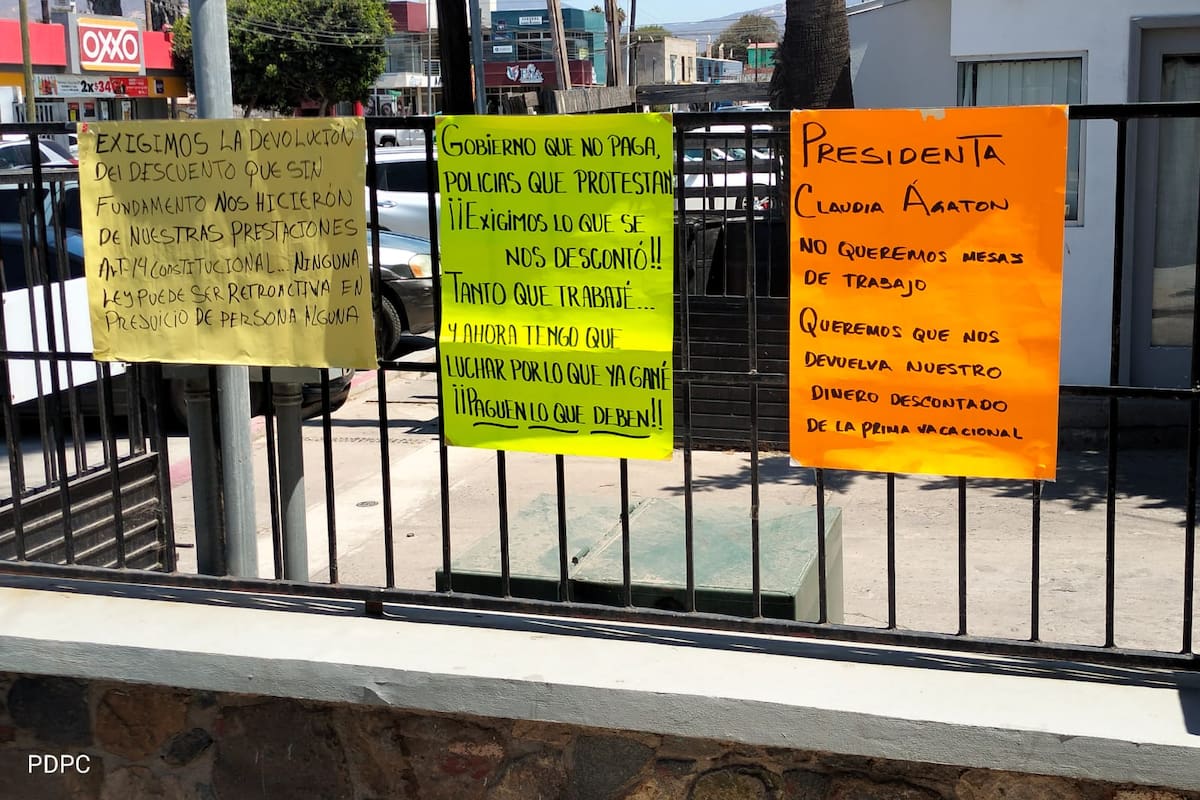 OXXO
2x$34
EXIGIMOS LA DEVOLUCIÓN
DEL DESCUENTO QUE SIN
FUNDAMENTO NOS HICIERÓN
DE NUESTRAS PRESTACIONES
ART. 14 CONSTITUCIONAL... NINGUNA
LEY PUEDE SER RETROACTIVA EN
PREJUICIO DE PERSONA ALGUNA
GOBIERNO QUE NO PAGA,
POLICIAS QUE PROTESTAN
¡¡EXIGIMOS LO QUE SE
NOS DESCONTÓ!!
TANTO QUE TRABAJÉ...
Y AHORA TENGO QUE
LUCHAR POR LO QUE YA GANÉ
¡¡PAGUEN LO QUE DEBEN!!
PRESIDENTA
CLAUDIA ÁGATON
NO QUEREMOS MESAS
DE TRABAJO
QUEREMOS QUE NOS
DEVUELVA NUESTRO
DINERO DESCONTADO
DE LA PRIMA VACACIONAL
PDPC